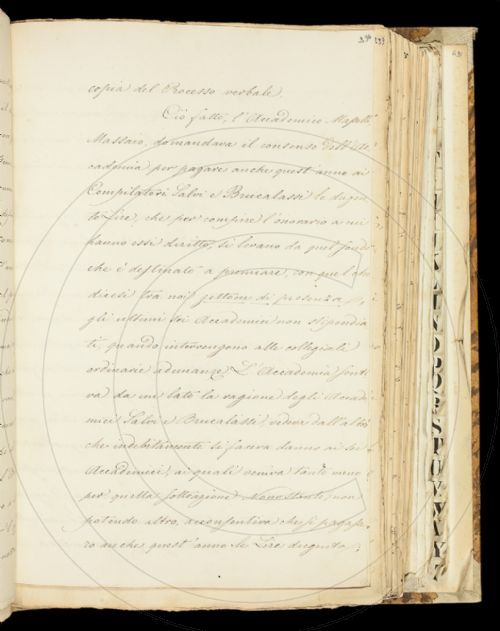 copia del Processo verbale
Ciò fatto, l'Accademico
Massaio, domandava il consenso dell'Ac-
cademia per pagare anche quest'anno ai
Compilatori Salvi e Brucalassi le dugen-
to Lire, che per compire l'onorario a cui
hanno essi diritto, si levano da quel fondo
che è destinato a premiare, con quel che
dicesi tra noi gettone di presenza,
gli ultimi sei Accademici non stipendia-
ti, quando intervengono alle collegiali
ordinarie adunanze. L'Accademia senti-
va da un lato la ragione degli Accade-
mici Salvi e Brucalassi, vedeva dall'altro
che indebitamente si faceva danno ai sei
Accademici, ai quali veniva tanto meno
per quella sottrazione. Nonostante, non
potendo altro, acconsentiva che si pagasse-
ro anche quest'anno le Lire dugento;